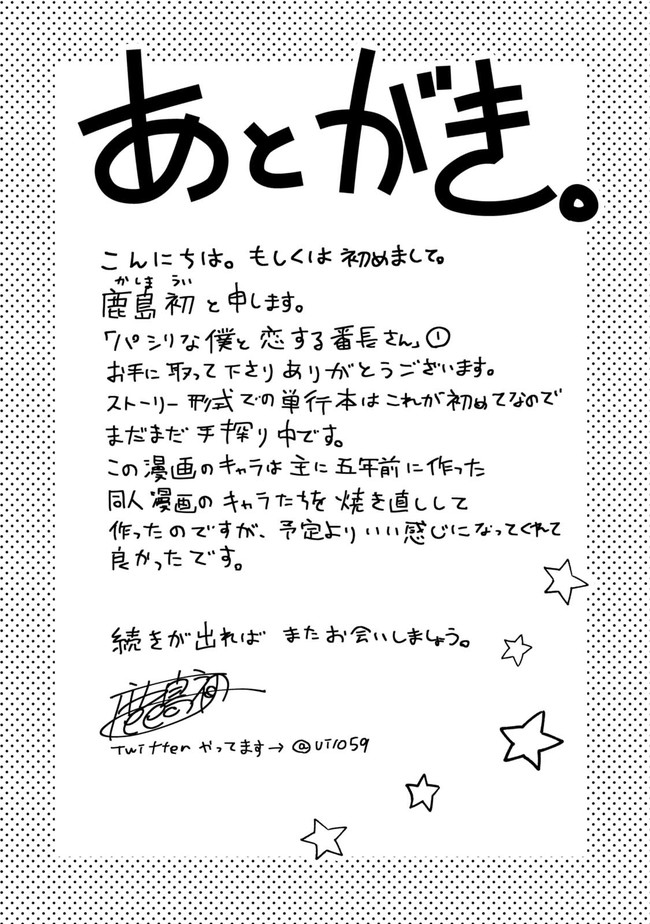 あとがき。
こんにちは。もしくは初めまして。
かしま うい
鹿島 初と申します。
「パシリな僕と恋する番長さん」①
お手に取って下さりありがとうございます。
ストーリー形式での単行本はこれが初めてなので
まだまだ手探り中です。
この漫画のキャラは主に五年前に作った
同人漫画のキャラたちを焼き直しして
作ったのですが、予定よりいい感じになってくれて
良かったです。
続きが出れば またお会いしましょう。
鹿島初
Twitter やってます→ @ui1059